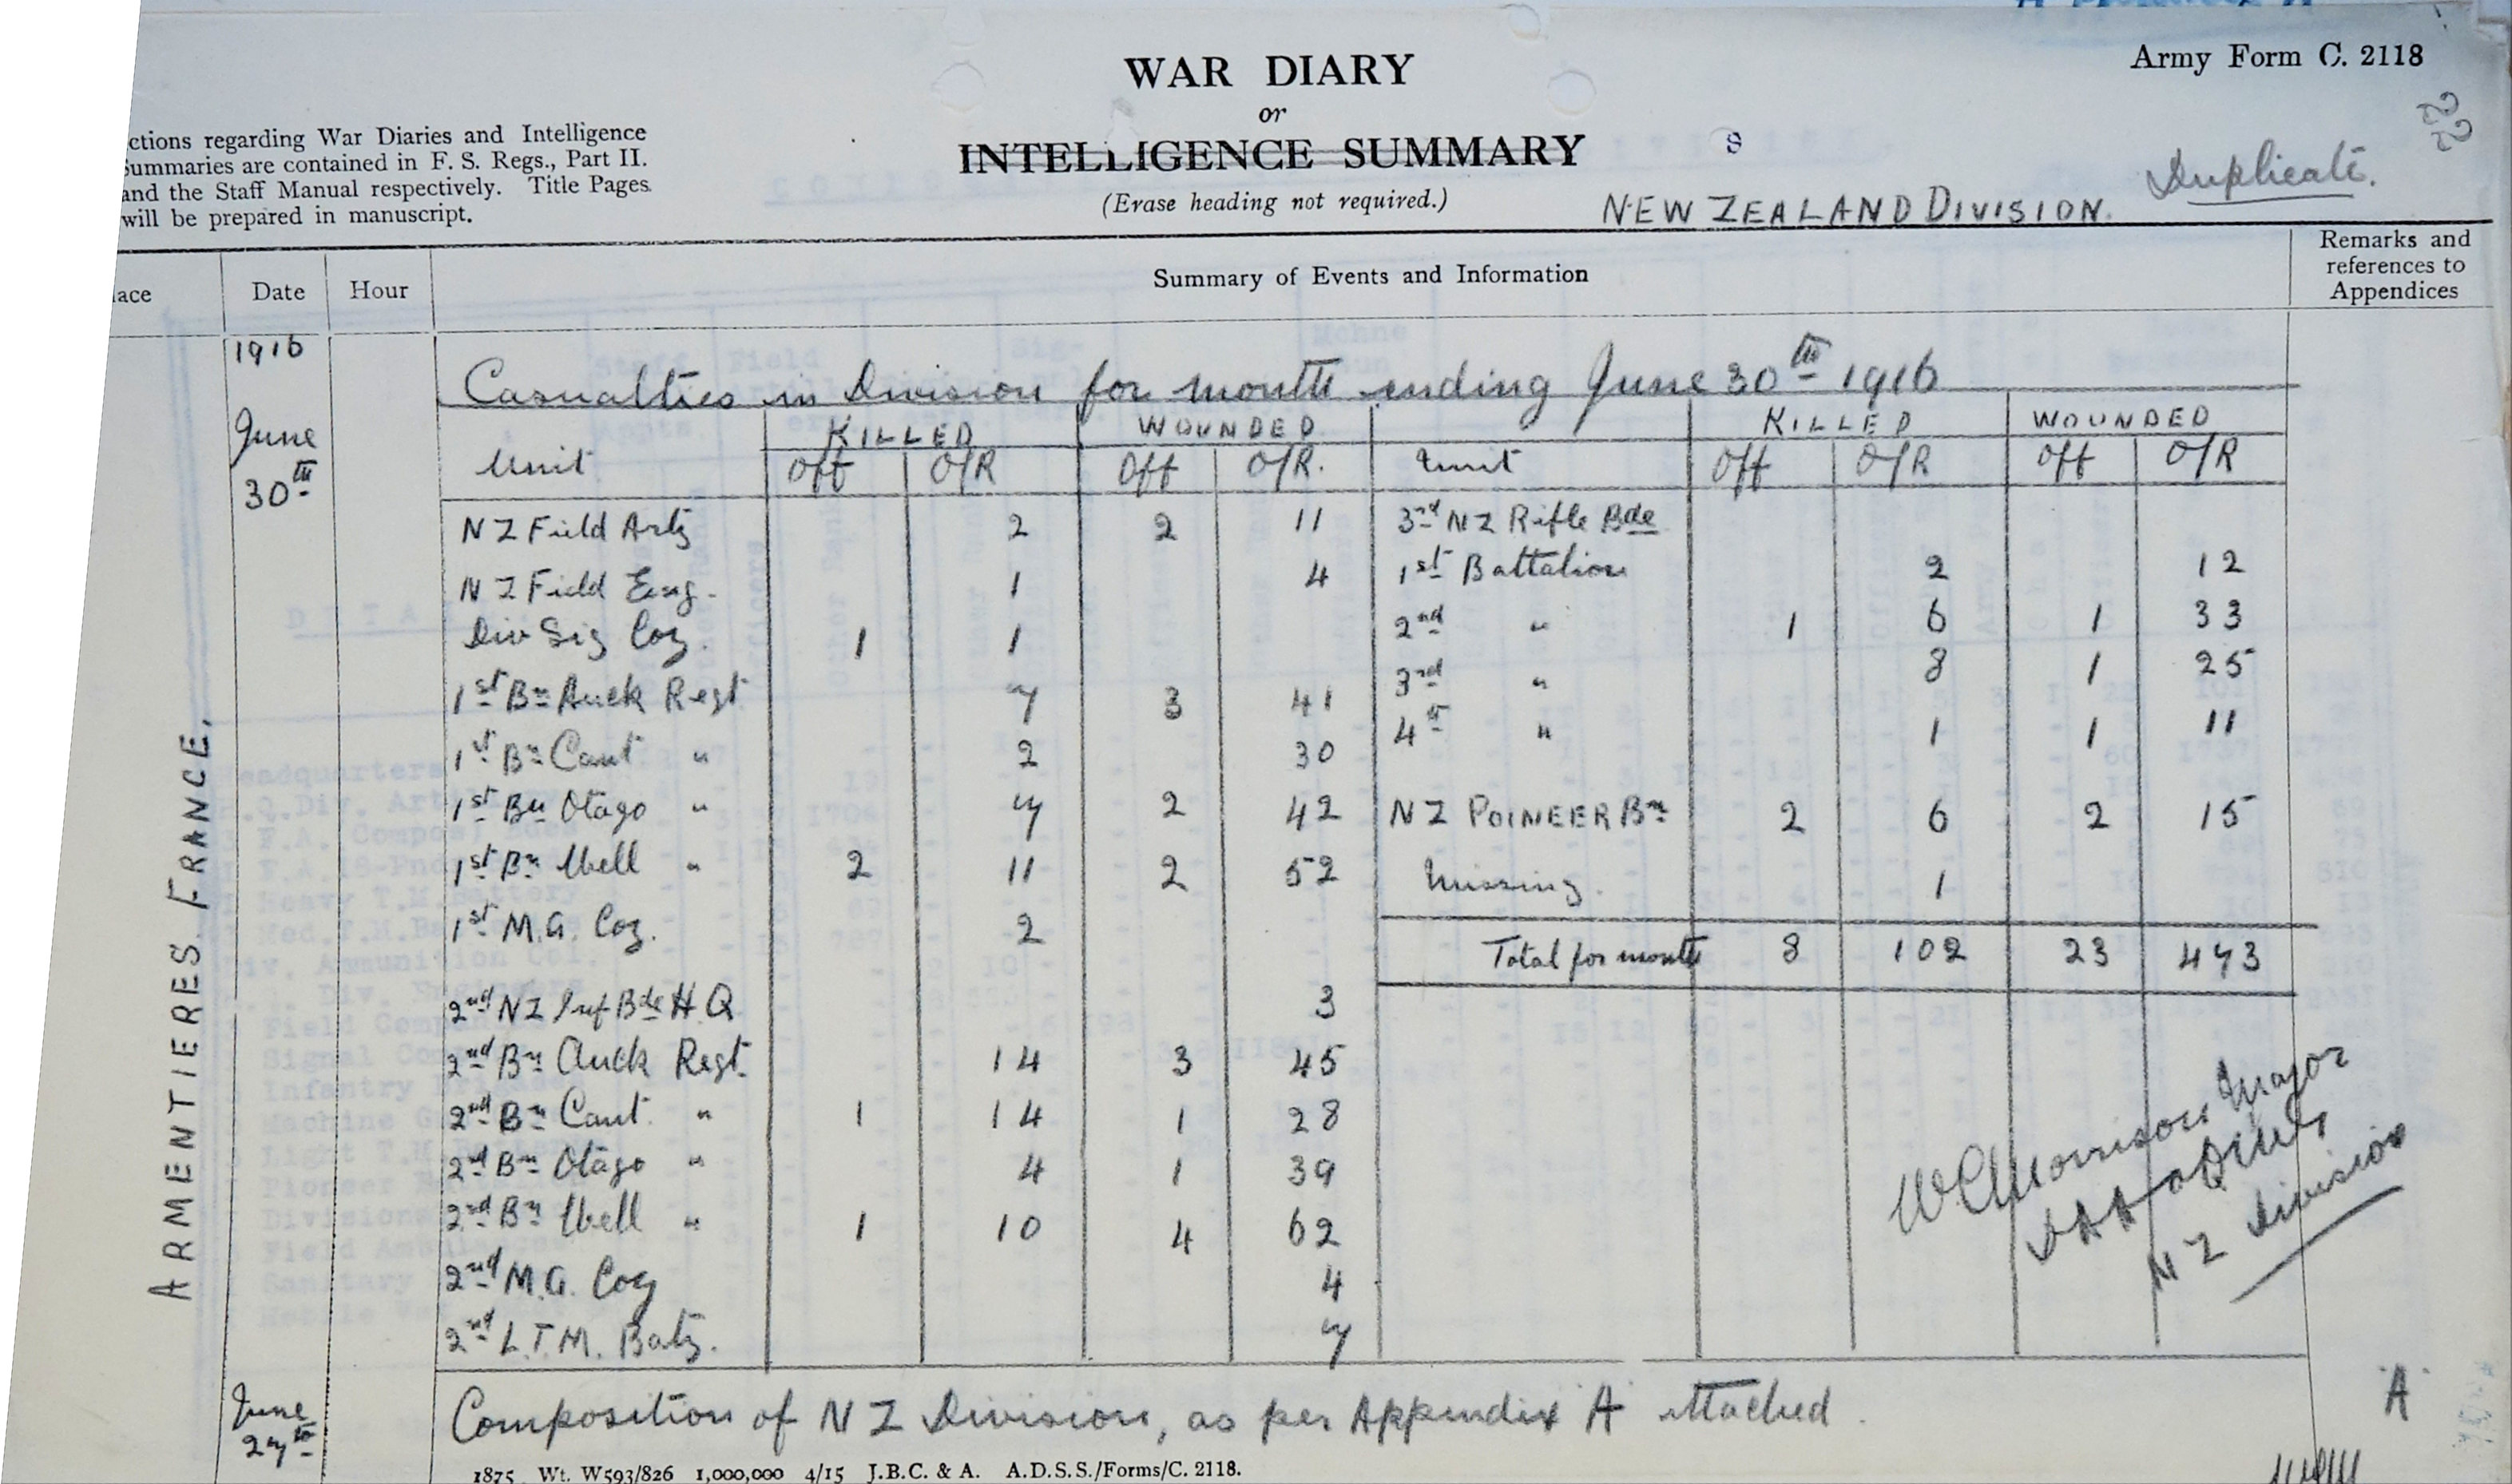 Army Form C. 2118
WAR DIARY
or
INTELLIGENCE SUMMARY
(Erase heading not required.)
22
Duplicate.
NEW ZEALAND DIVISION.
ctions regarding War Diaries and Intelligence
Summaries are contained in F. S. Regs., Part II.
and the Staff Manual respectively. Title Pages
will be prepared in manuscript.
lace Date Hour Summary of Events and Information Remarks and references to Appendices
ARMENTIERES FRANCE.
1916
June
30th
Casualties in Division for month ending June 30th 1916
KILLED WOUNDED KILLED WOUNDED
Unit Off O/R Off O/R. Unit Off O/R Off O/R
NZ Field Arty 2 2 11 3rd NZ Rifle Bde
NZ Field Eng. 1 4 1st Battalion 2 12
Div Sig Coy. 1 1 2nd " 1 6 1 33
1st Bn Auck Regt 7 3 41 3rd " 8 1 25
1st Bn Cant " 2 30 4th " 1 1 11
1st Bn Otago " 7 2 42 NZ POINEER Bn 2 6 2 15
1st Bn Well " 2 11 2 52 Missing. 1
1st M.G. Coy. 2 Total for month 8 102 23 473
2nd NZ Inf Bde H.Q 3
2nd Bn Auck Regt. 14 3 45
2nd Bn Cant. " 1 14 1 28
2nd Bn Otago " 4 1 39
2nd Bn Well " 1 10 4 62
2nd M.G. Coy 4
2nd L.T.M. Baty. 7
W C Morrison Major
NZ Division
June
27th
Composition of NZ Division, as per Appendix 'A' attached. 'A'
1875 Wt. W593/826 1,000,000 4/15 J.B.C. & A. A.D.S.S./Forms/C. 2118.